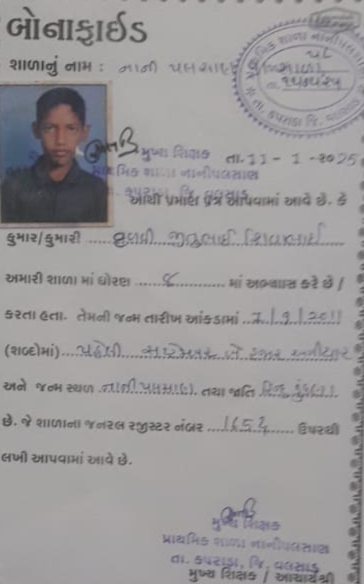 બોનાફાઈડ
શાળાનું નામ : નાની પલસાણ
મુખ્ય શિક્ષક તા. 11 - 1 - 2025
પ્રાથમિક શાળા નાનીપલસાણ
તા. કપરાડા, જિ. વલસાડ
આથી પ્રમાણ પત્ર આપવામાં આવે છે. કે
કુમાર/કુમારી ..... જીતુભાઈ
અમારી શાળા માં ધોરણ ......... ૪ ......... માં અભ્યાસ કરે છે /
કરતા હતા. તેમની જન્મ તારીખ આંકડામાં ../9/2011
(શબ્દોમાં) ... પહેલી સપ્ટેમ્બર બે હજાર અગીયાર
અને જન્મ સ્થળ નાની પલસાણ તથા જાતિ હિન્દુ કુંકણા
છે. જે શાળાના જનરલ રજીસ્ટર નંબર ..... ઉપરથી
લખી આપવામાં આવે છે.
મુખ્ય શિક્ષક
પ્રાથમિક શાળા નાનીપલસાણ
તા. કપરાડા, જિ, વલસાડ
મુખ્ય શિક્ષક / આચાર્યશ્રી